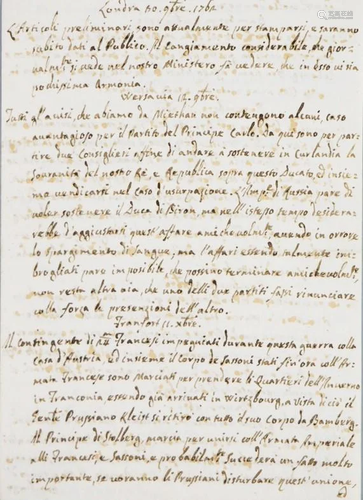 Londra 30. 9bre. 1762
L'Articoli preliminari sono attualmente per stamparsi, e saranno
subito dati al Publico. Il cangiamento considerabile, che gior-
nalmte si vede nel nostro Ministero fà vedere che in esso vi sia
pochissima Armonia.
Versavia 14. 9bre.
Tutti gl'avisi, che abiamo da Miethau non contengono alcuni, caso
avantagioso per il Partito del Principe Carlo. Da qui sono per par-
tire due Consiglieri affine di andare à sostenere in Curlandia la
Souranità del nostro Rè, e Republica sopra questo Ducato, ed insie-
mo vendicarsi nel caso d'usurpazione. L'Imp. di Russia pare di
voler sostenere il Duca di Biron, ma nell'istesso tempo desidera-
rebbe d'aggiustarsi quest'affare amichevolmte, avendo in orrore
lo spargimento di sangue, ma l'affari essendo talmente im-
brogliati pare imposibile, che possino terminare amichevolmte,
non resta altra via, che uno delli due partiti fassi rinunciare
colla forza le pretenzioni dell'altro.
Franfort 11. xbre.
Il contingente di Francesi impiegati durante questa guerra colla
Casa d'Austria ed insieme il Corpo de Sassoni stati fin'ora coll'Ar-
mata Francese sono Marciati per prendere li Quartieri dell'Inverno
in Franconia estendo già arrivati in Wirtzbourg, a vista di ciò il
Genle Prussiano Kleist si ritirò con tutto il suo Corpo da Bamberg.
Il Principe di Stolberg, marcia per unirsi coll'Armata Imperiale
alli Francesi, e Sassoni, e probabilmte succederà un fatto molto
importante, se voranno li Prussiani disturbare quest'unione,